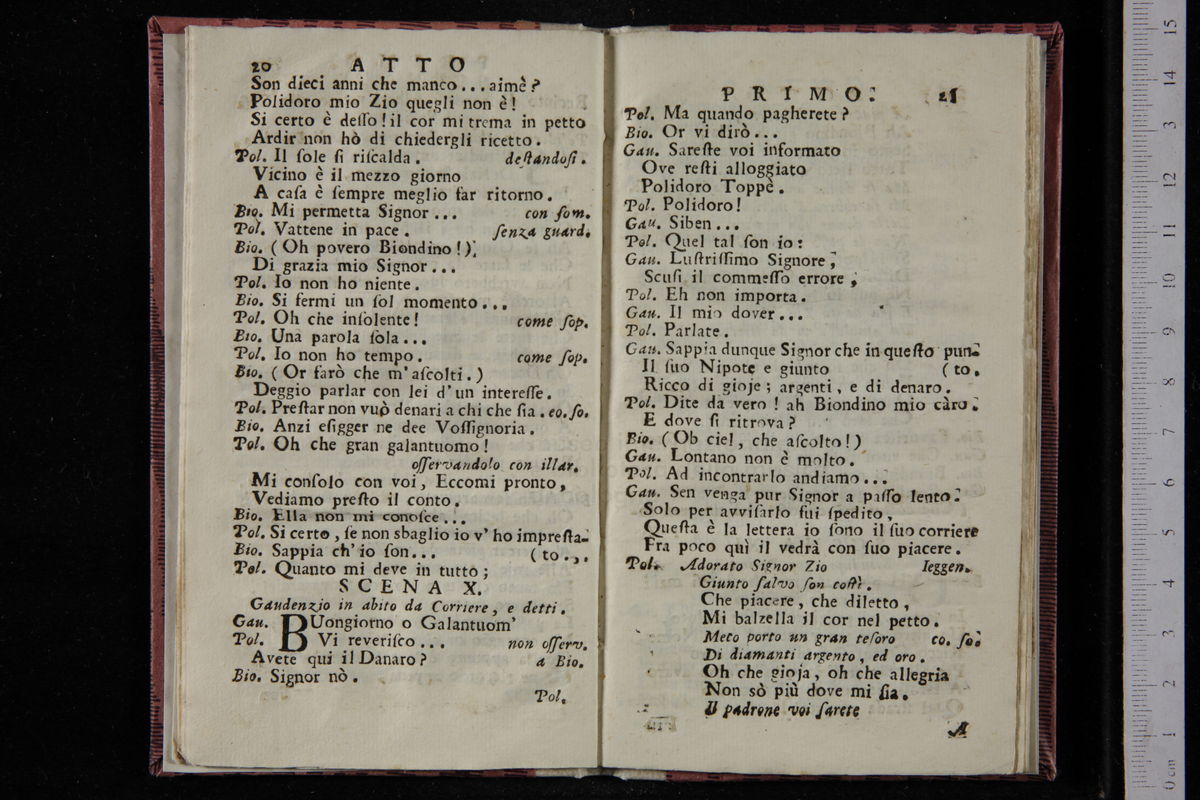 20 ATTO
Son dieci anni che manco...aimè?
Polidoro mio Zio quegli non è!
Si certo è deſſo!il cor mi trema in petto
Ardir non hò di chiedergli ricetto.
Pol. Il ſole ſi riſcalda. deſtandoſi.
Vicino è il mezzo giorno
A caſa è ſempre meglio far ritorno.
Bio. Mi permetta Signor... con ſom.
Pol. Vattene in pace. ſenza guard.
Bio. (Oh povero Biondino!)
Di grazia mio Signor...
Pol. Io non ho niente.
Bio. Si fermi un ſol momento...
Pol. Oh che inſolente! come ſop.
Bio. Una parola ſola...
Pol. Io non ho tempo. come ſop.
Bio. (Or farò che m'aſcolti.)
Deggio parlar con lei d'un intereſſe.
Pol. Preſtar non vuò denari a chi che ſia.co.ſo.
Bio. Anzi eſigger ne dee Voſſignoria.
Pol. Oh che gran galantuomo!
oſſervandolo con illar.
Mi conſolo con voi, Eccomi pronto,
Vediamo preſto il conto.
Bio. Ella non mi conoſce...
Pol. Si certo, ſe non sbaglio io v'ho impreſta-
Bio. Sappia ch'io ſon... (to...
Pol. Quanto mi deve in tutto;
SCENA X.
Gaudenzio in abito da Corriere, e detti.
Gau. BUongiorno o Galantuom'
Pol. Vi reveriſco... non oſſerv.
Avete qui il Danaro? a Bio.
Bio. Signor nò.
Pol.
PRIMO. 21
Pol. Ma quando pagherete?
Bio. Or vi dirò...
Gau. Sareſte voi informato
Ove reſti alloggiato
Polidoro Toppè.
Pol. Polidoro!
Gau. Siben...
Pol. Quel tal ſon io:
Gau. Luſtriſſimo Signore,
Scuſi il commeſſo errore;
Pol. Eh non importa.
Gau. Il mio dover...
Pol. Parlate.
Gau. Sappia dunque Signor che in queſto pun-
Il ſuo Nipote e giunto (to.
Ricco di gioje; argenti, e di denaro.
Pol. Dite da vero! ah Biondino mio càro.
E dove ſi ritrova?
Bio. (Ob ciel, che aſcolto!)
Gau. Lontano non è molto.
Pol. Ad incontrarlo andiamo...
Gau. Sen venga pur Signor a paſſo lento.
Solo per avviſarlo fui ſpedito,
Queſta è la lettera io ſono il ſuo corriere
Fra poco quì il vedrà con ſuo piacere.
Pol. Adorato Signor Zio leggen.
Giunto ſalvo ſon coſtì.
Che piacere, che diletto,
Mi balzella il cor nel petto.
Meco porto un gran teſoro co. ſo.
Di diamanti argento, ed oro.
Oh che gioja, oh che allegria
Non sò più dove mi ſia.
Il padrone voi ſarete
A
0 cm 1 2 3 4 5 6 7 8 9 10 11 12 3 14 15